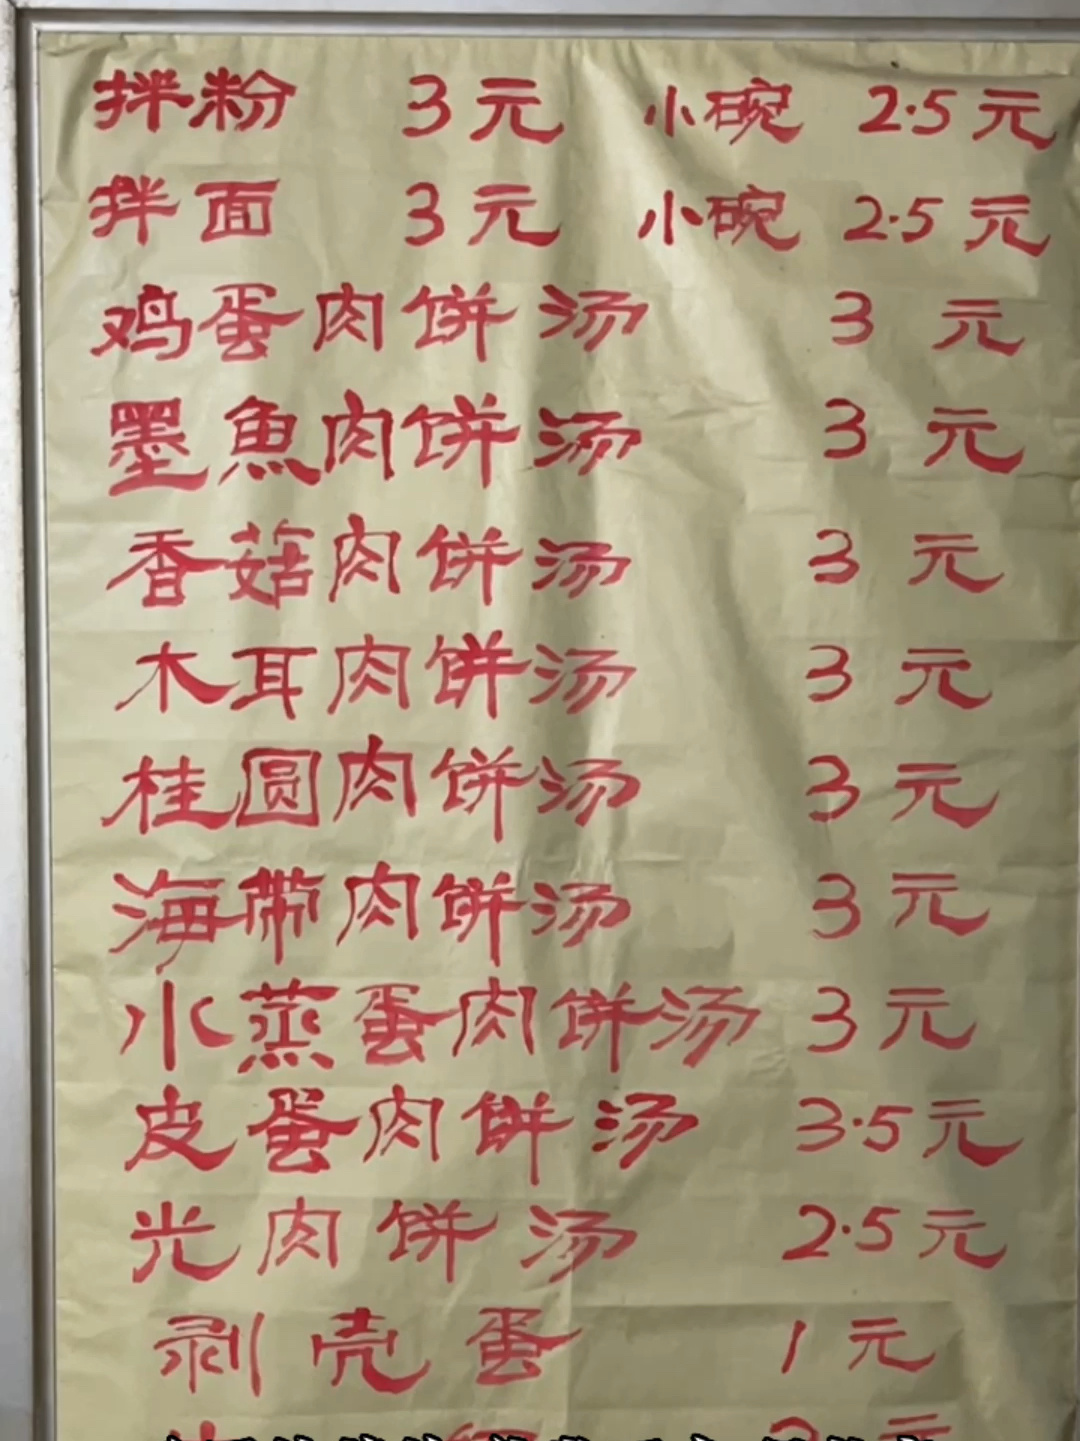 拌粉 3元 小碗 2.5元
拌面 3元 小碗 2.5元
鸡蛋肉饼汤 3元
墨魚肉饼汤 3元
香菇肉饼汤 3元
木耳肉饼汤 3元
桂圆肉饼汤 3元
海带肉饼汤 3元
水蒸蛋肉饼汤 3元
皮蛋肉饼汤 3.5元
光肉饼汤 2.5元
剥壳蛋 1元